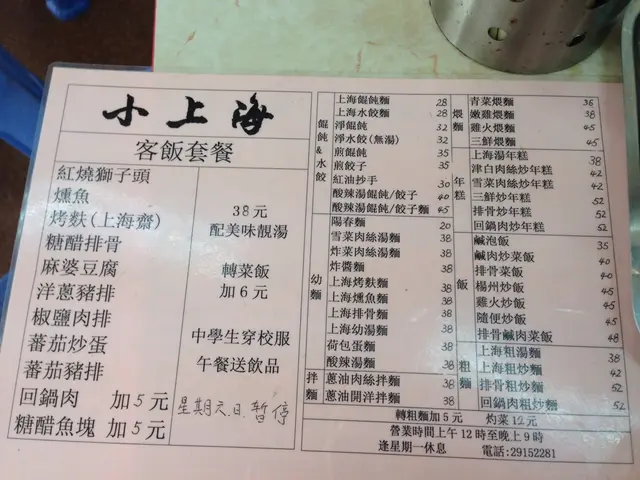 小上海
客飯套餐
紅燒獅子頭
燻魚
烤麩(上海齋)
糖醋排骨
麻婆豆腐
洋蔥豬排
椒鹽肉排
蕃茄炒蛋
蕃茄豬排
回鍋肉 加5元
糖醋魚塊 加5元
38元
配美味靚湯
轉菜飯
加6元
中學生穿校服
午餐送飲品
星期六日暫停
餛飩&水餃
上海餛飩麵 28
上海水餃麵 28
淨餛飩 32
淨水餃(無湯) 32
煎餛飩 35
煎餃子 35
紅油抄手 30
酸辣湯餛飩/餃子 40
酸辣湯餛飩/餃子麵 45
幼麵
陽春麵 20
雪菜肉絲湯麵 38
炸菜肉絲湯麵 38
炸醬麵 38
上海烤麩麵 38
上海燻魚麵 38
上海排骨麵 38
上海幼湯麵 38
荷包蛋麵 38
酸辣湯麵 38
拌麵
蔥油肉絲拌麵 38
蔥油開洋拌麵 38
煨麵
青菜煨麵 36
嫩雞煨麵 38
雞火煨麵 45
三鮮煨麵 45
年糕
上海湯年糕 38
津白肉絲炒年糕 42
雪菜肉絲炒年糕 42
三鮮炒年糕 52
排骨炒年糕 52
回鍋肉炒年糕 52
飯
鹹泡飯 35
鹹肉炒菜飯 40
排骨菜飯 40
楊州炒飯 45
雞火炒飯 45
隨便炒飯 45
排骨鹹肉菜飯 48
粗麵
上海粗湯麵 38
上海粗炒麵 42
排骨粗炒麵 52
回鍋肉粗炒麵 52
轉粗麵加5元 灼菜12元
營業時間上午12時至晚上9時
逢星期一休息 電話:29152281